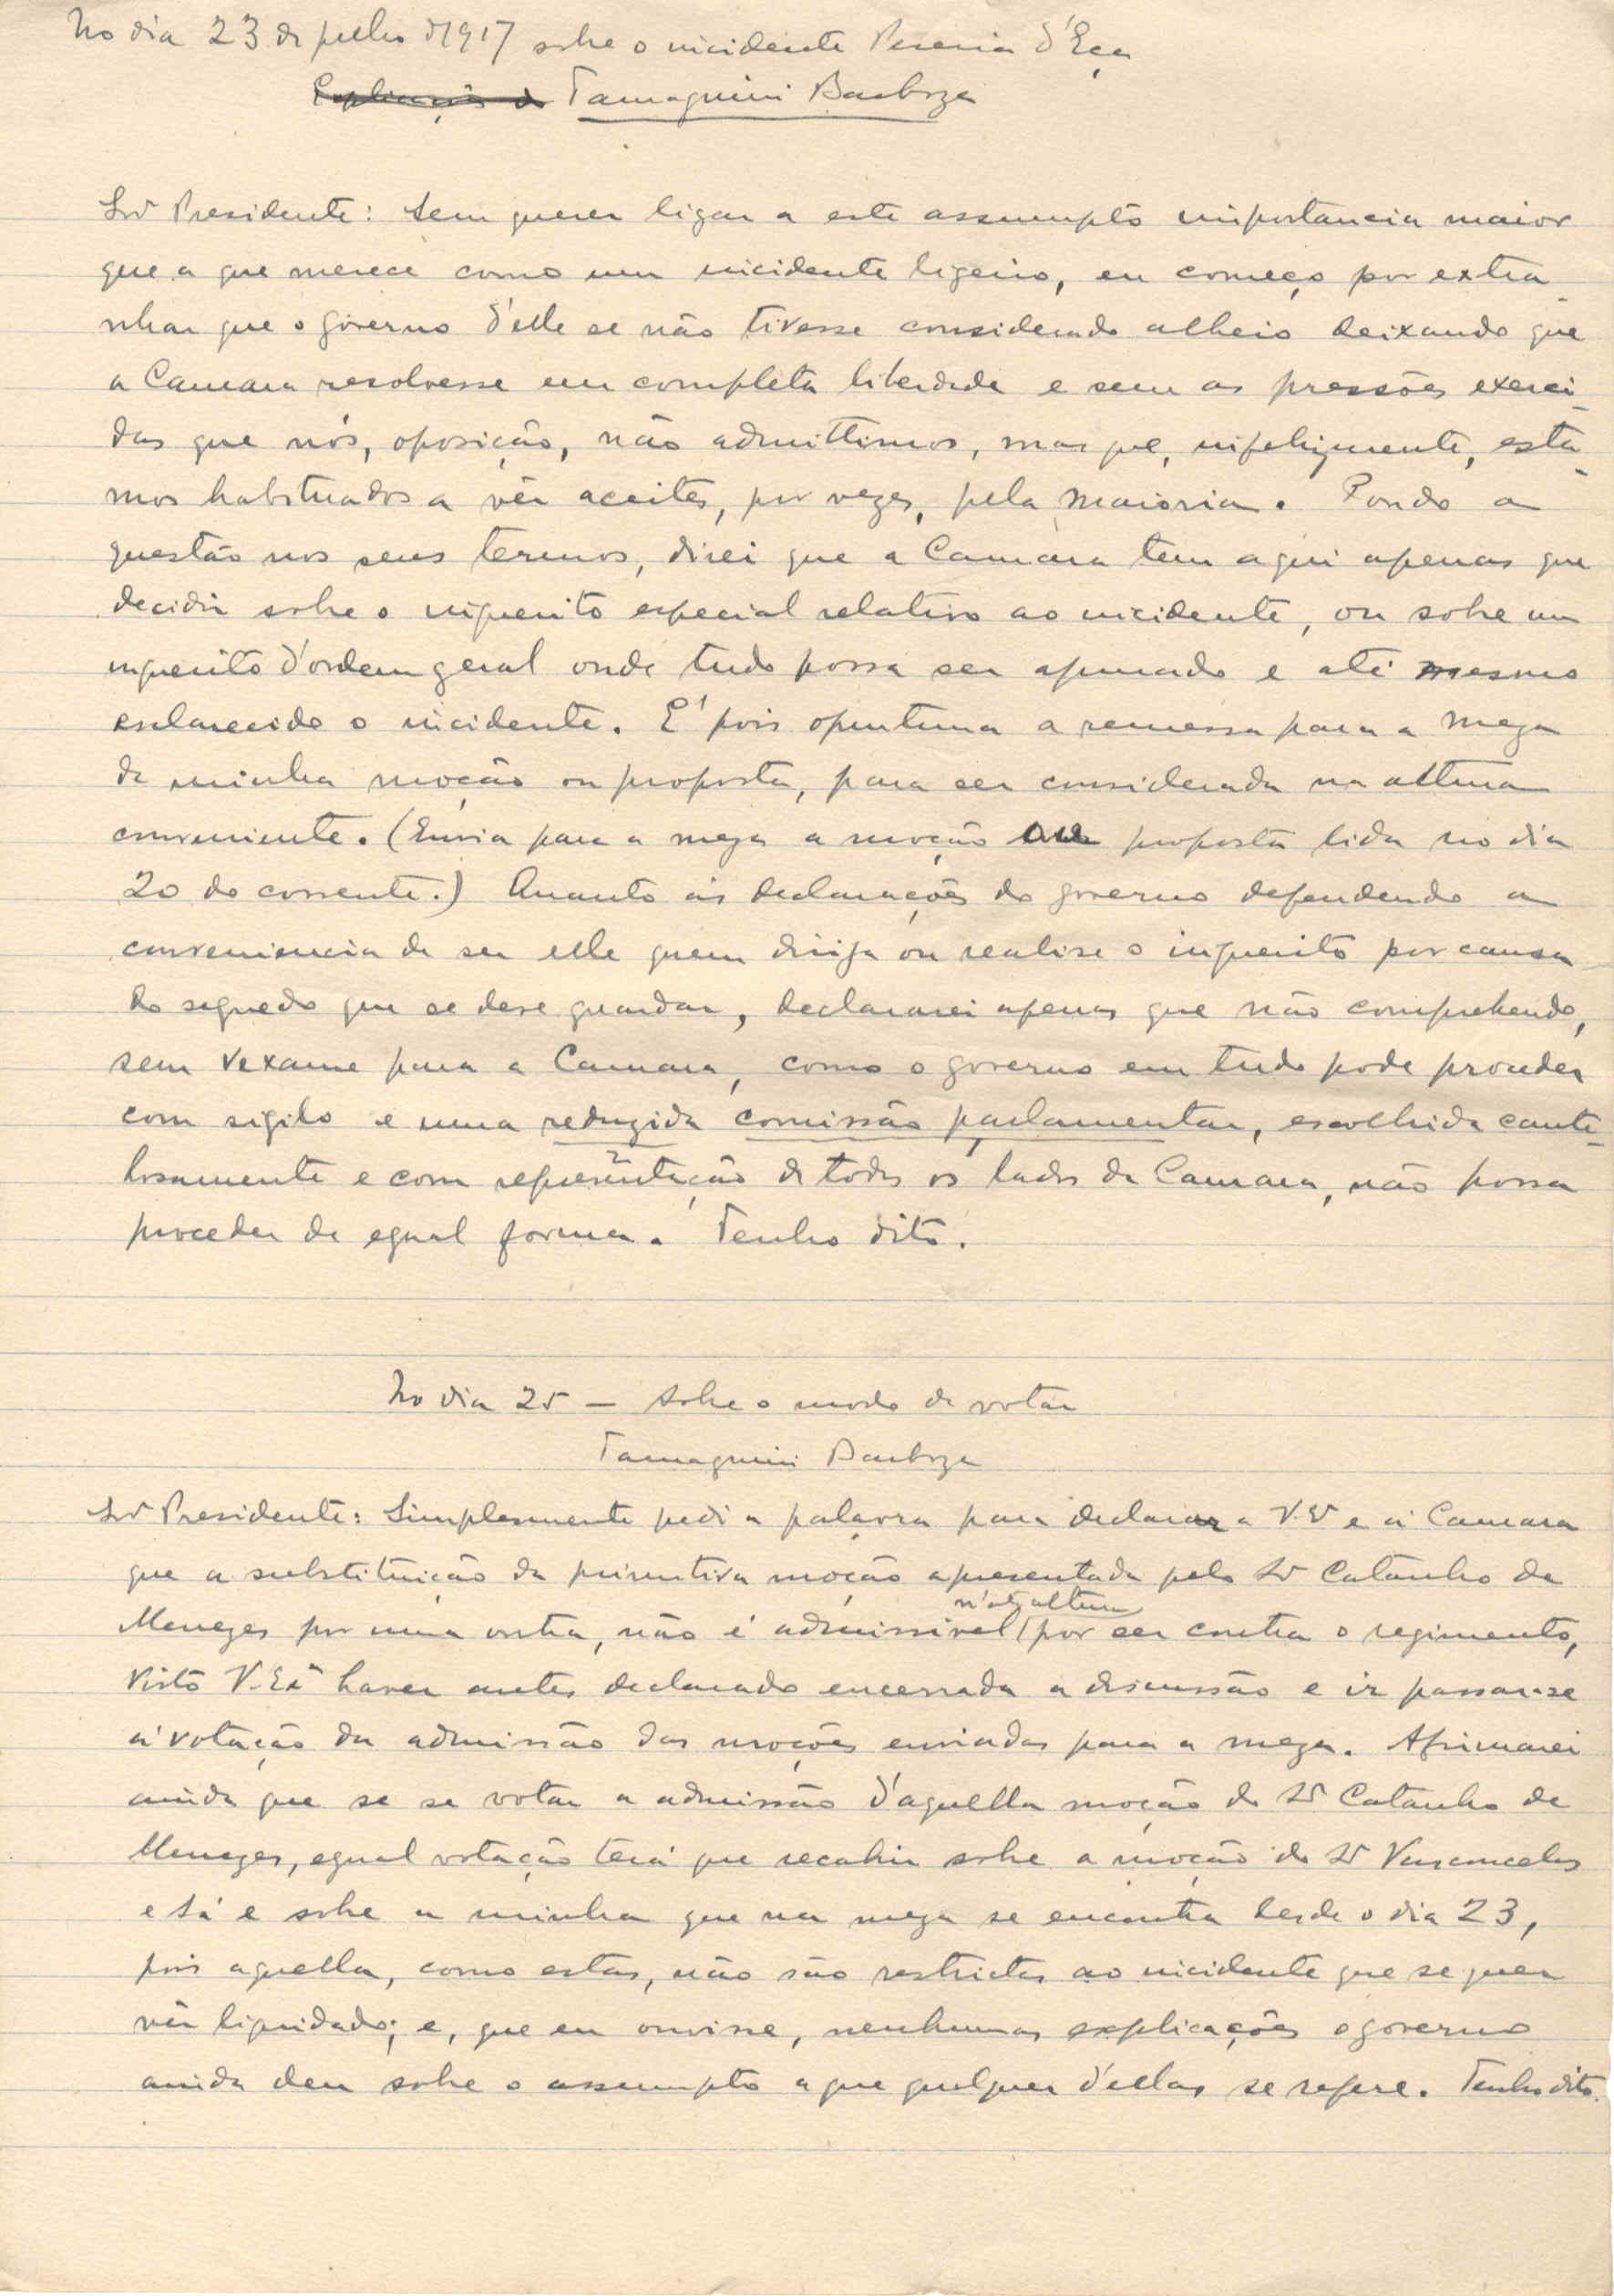 No dia 23 de julho d'1917 sobre o incidente Pereira d'Eça
Explicação do Tamagnini Barboza
Snr Presidente: Sem querer ligar a este assumpto importancia maior
que a que merece como um incidente ligeiro, eu começo por extra-
nhar que o governo d'elle se não tivesse considerado alheio deixando que
a Camara resolvesse em completa liberdade e sem as pressões exerci-
das que nós, oposição, não admittimos, mas que, infelizmente, esta-
mos habituados a vêr aceites, por vezes, pela maioria. Pondo a
questão nos seus termos, direi que a Camara tem aqui apenas que
decidir sobre o inquerito especial relativo ao incidente, ou sobre um
inquerito d'ordem geral onde tudo possa ser apurado e até mesmo
esclarecido o incidente. E' pois oportuna a remessa para a meza
da minha moção ou proposta, para ser considerada na altura
conveniente. (Envia para a meza a moção ou proposta lida no dia
20 do corrente.) Quanto ás declarações do governo defendendo a
conveniencia de ser elle quem dirija ou realise o inquerito por causa
do segredo que se deve guardar, declararei apenas que não comprehendo,
sem vexame para a Camara, como o governo em tudo pode proceder
com sigilo e uma reduzida comissão parlamentar, escolhida caute-
losamente e com representação de todos os lados da Camara, não possa
proceder de egual forma. Tenho dito.
No dia 25 — Sobre o modo de votar
Tamagnini Barboza
Snr Presidente: Simplesmente pedi a palavra para declarar a V. Exª e á Camara
que a substituição da primitiva moção apresentada pelo Sr Catanho de
n'esta altura
Menezes por uma outra, não é admissivel por ser contra o regimento,
visto V. Exª haver antes declarado encerrada a discussão e ir passar-se
á votação da admissão das moções enviadas para a meza. Afirmarei
ainda que se se votar a admissão d'aquella moção do Sr Catanho de
Menezes, egual votação terá que recahir sobre a moção do Sr Vasconcelos
e Sá e sobre a minha que na meza se encontra desde o dia 23,
pois aquella, como estas, não são restrictas ao incidente que se quer
vêr liquidado; e, que eu ouvisse, nenhumas explicações o governo
ainda deu sobre o assumpto a que qualquer d'ellas se refere. Tenho dito.